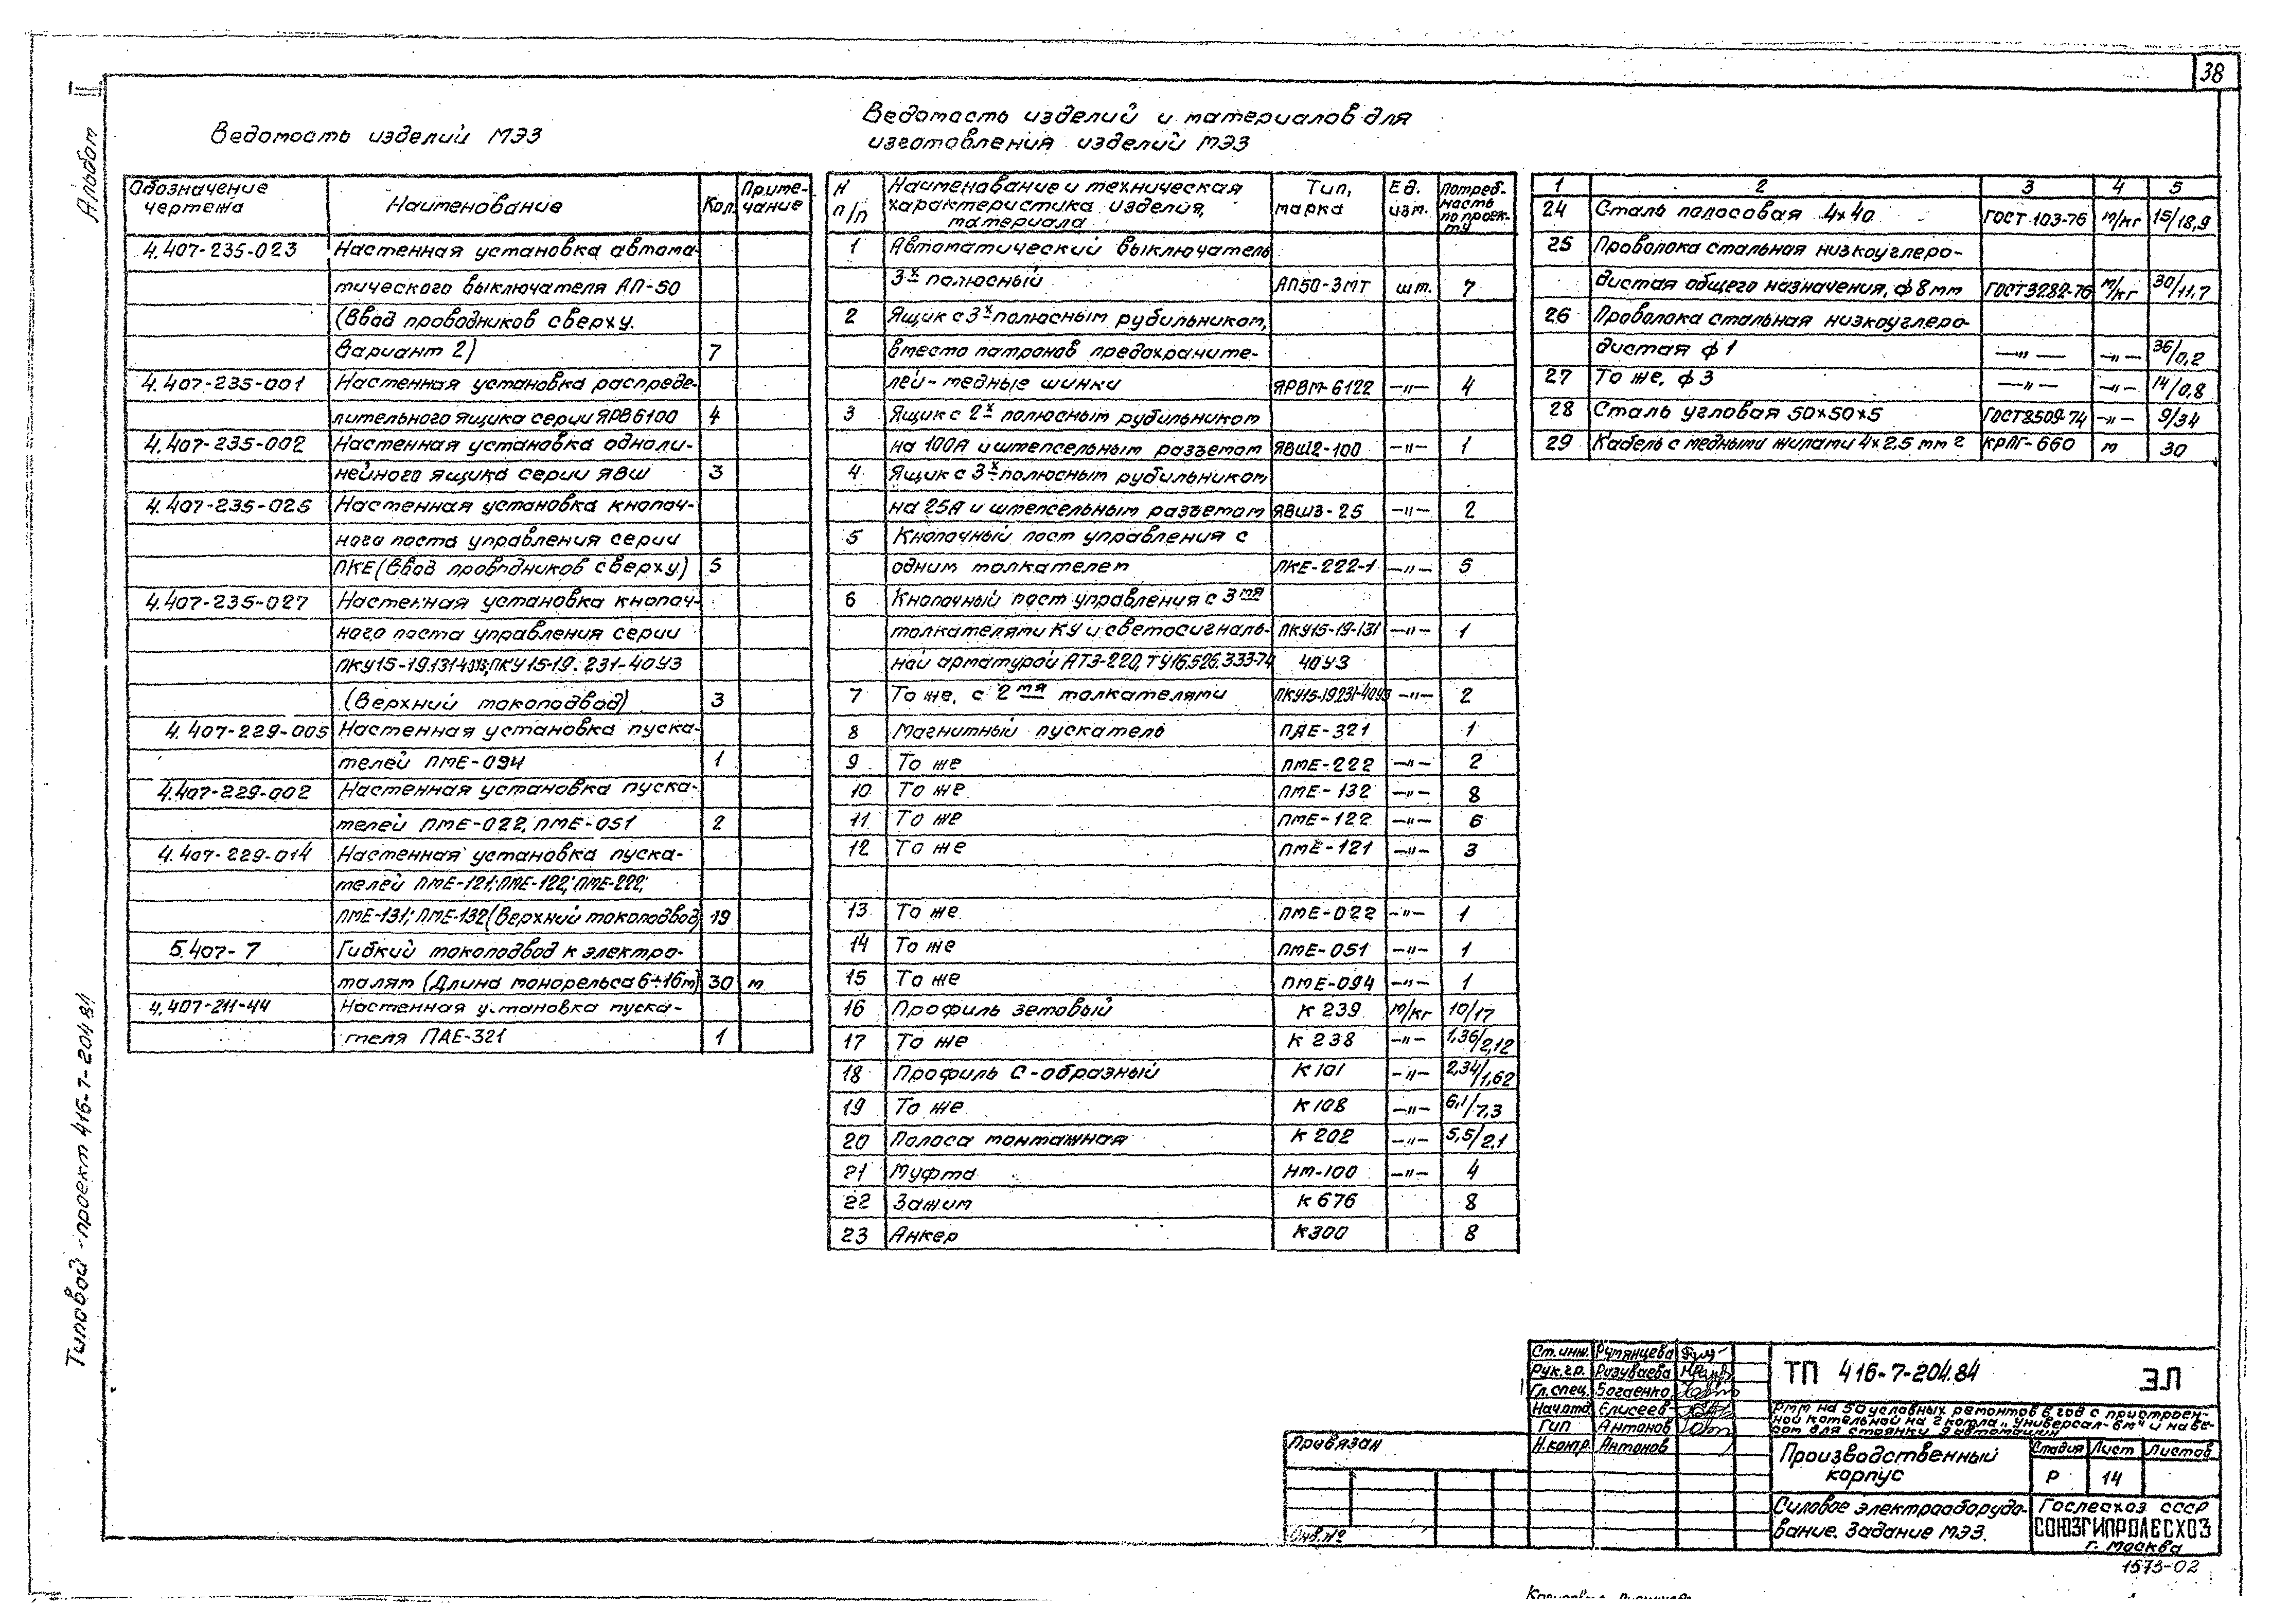 38
Альбом II
Типовой проект 416-7-204.84
Ведомость изделий МЭЗ
Обозначение чертежа | Наименование | Кол. | Приме-чание
4.407-235-023 | Настенная установка автома-
тического выключателя АП-50
(Ввод проводников сверху.
Вариант 2) | 7
4.407-235-001 | Настенная установка распреде-
лительного ящика серии ЯРВ6100 | 4
4.407-235-002 | Настенная установка одноли-
нейного ящика серии ЯВШ | 3
4.407-235-025 | Настенная установка кнопоч-
ного поста управления серии
ПКЕ (Ввод проводников сверху) | 5
4.407-235-027 | Настенная установка кнопоч-
ного поста управления серии
ПКУ15-19.131-40У3; ПКУ15-19.231-40У3
(Верхний токоподвод) | 3
4.407-229-005 | Настенная установка пуска-
телей ПМЕ-094 | 1
4.407-229-002 | Настенная установка пуска-
телей ПМЕ-022, ПМЕ-051 | 2
4.407-229-014 | Настенная установка пуска-
телей ПМЕ-121; ПМЕ-122; ПМЕ-222;
ПМЕ-131; ПМЕ-132 (Верхний токоподвод) | 19
5.407-7 | Гибкий токоподвод к электро-
талям (Длина монорельса 6÷16м) | 30 | м
4.407-211-44 | Настенная установка пуска-
теля ПАЕ-321 | 1
Ведомость изделий и материалов для
изготовления изделий МЭЗ
N п/п | Наименование и техническая характеристика изделия, материала | Тип, марка | Ед. изм. | Потреб-ность по проек-ту
1 | Автоматический выключатель
3х полюсный | АП50-3МТ | шт. | 7
2 | Ящик с 3х полюсным рубильником,
вместо патронов предохраните-
лей - медные шинки | ЯРВМ-6122 | —"— | 4
3 | Ящик с 2х полюсным рубильником
на 100А и штепсельным разъемом | ЯВШ2-100 | —"— | 1
4 | Ящик с 3х полюсным рубильником
на 25А и штепсельным разъемом | ЯВШ3-25 | —"— | 2
5 | Кнопочный пост управления с
одним толкателем | ПКЕ-222-1 | —"— | 5
6 | Кнопочный пост управления с 3мя
толкателями КУ и светосигналь- | ПКУ15-19-131 | —"— | 1
ной арматурой АТЭ-220, ТУ16.526.333-74 | 40У3
7 | То же, с 2мя толкателями | ПКУ15-19231-40У3 | —"— | 2
8 | Магнитный пускатель | ПАЕ-321 | 1
9 | То же | ПМЕ-222 | —"— | 2
10 | То же | ПМЕ-132 | —"— | 8
11 | То же | ПМЕ-122 | —"— | 6
12 | То же | ПМЕ-121 | —"— | 3
13 | То же | ПМЕ-022 | —"— | 1
14 | То же | ПМЕ-051 | —"— | 1
15 | То же | ПМЕ-094 | —"— | 1
16 | Профиль зетовый | К 239 | м/кг | 10/17
17 | То же | К 238 | —"— | 1,36/2,12
18 | Профиль С-образный | К 101 | —"— | 2,34/1,62
19 | То же | К 108 | —"— | 6,1/7,3
20 | Полоса монтажная | К 202 | —"— | 5,5/2,1
21 | Муфта | НМ-100 | —"— | 4
22 | Зажим | К 676 | 8
23 | Анкер | К300 | 8
1 | 2 | 3 | 4 | 5
24 | Сталь полосовая 4х40 | ГОСТ 103-76 | м/кг | 15/18,9
25 | Проволока стальная низкоуглеро-
дистая общего назначения, ф8мм | ГОСТ3282-76 | м/кг | 30/11,7
26 | Проволока стальная низкоуглеро-
дистая ф1 | —"— | —"— | 36/0,2
27 | То же, ф3 | —"— | —"— | 14/0,8
28 | Сталь угловая 50х50х5 | ГОСТ8509-74 | —"— | 9/34
29 | Кабель с медными жилами 4х2,5 мм² | КРПГ-660 | м | 30
Ст.инж. Румянцева
Рук.гр. Ризуваева
Гл.спец. Богаенко
Нач.отд. Елисеев
Гип Антонов
Н.контр. Антонов
Привязан
Инв.№
ТП 416-7-204.84 ЭЛ
Рмм на 50 условных ремонтов в год с пристроен-
ной котельной на 2 котла "Универсал-6м" и наве-
сом для стоянки 9 автомашин
Производственный
корпус
Стадия | Лист | Листов
Р | 14
Силовое электрооборудо-
вание. Задание МЭЗ.
Гослесхоз СССР
СОЮЗГИПРОЛЕСХОЗ
г. Москва
1573-02